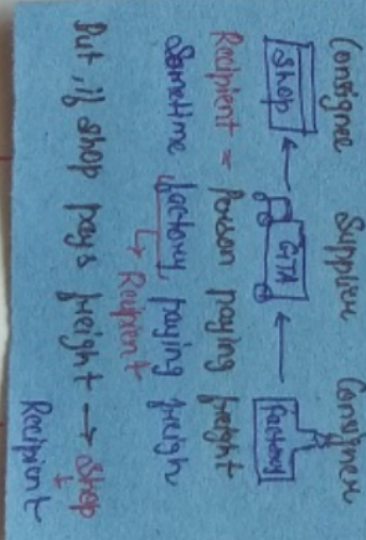 Consignee Supplier Consigner
Shop GTA Factory
Recipient = Person paying freight
Sometime factory paying freigh
Recipient
But if shop pays freight → Shop
Recipient